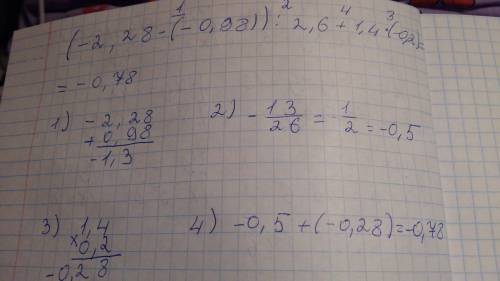 (-2,28-(-0,98)):2,6+1,4·(-0,2)=
1 2 4 3
= -0,78
1) -2,28
+0,98
-1,3
2) -13/26 = -1/2 = -0,5
3) 1,4
×0,2
-0,28
4) -0,5+(-0,28)=-0,78